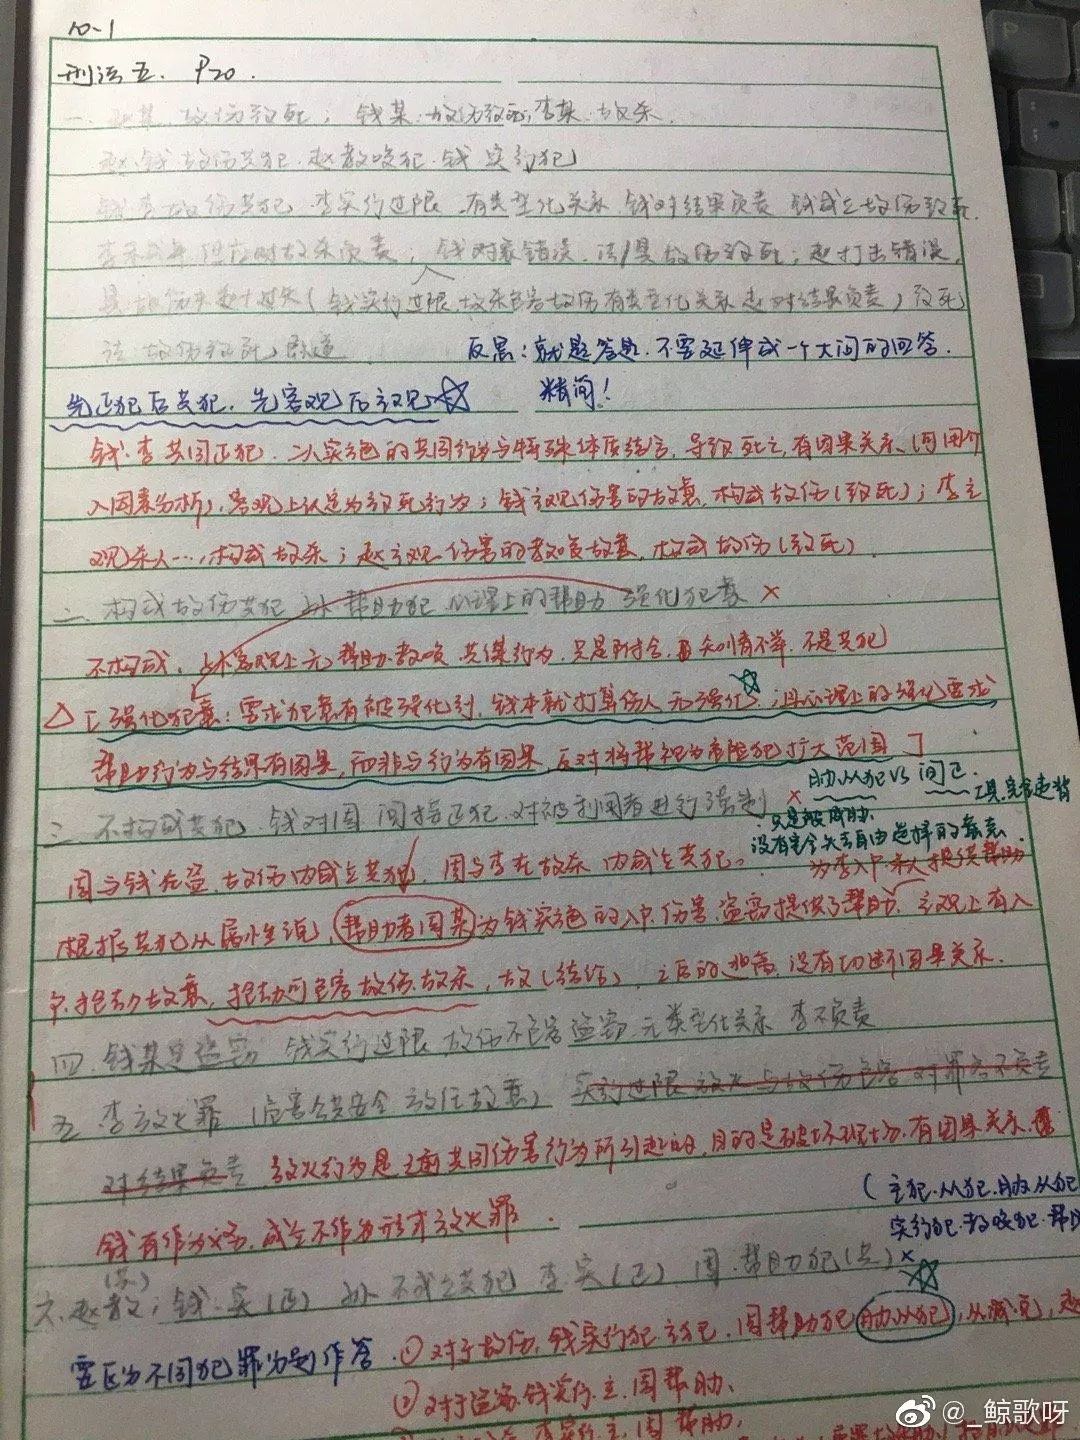 10-1
刑法五. P20.
一. 赵某 故伤致死；钱某.故伤致死；李某.故杀.
赵.钱 故伤共犯.赵教唆犯.钱 实行犯
钱李故伤共犯 李实行过限 有类型化关系 钱对结果负责 钱成立故伤致死.
李 对故杀负责；钱对象错误, 法/具 故伤致死；赵打击错误,
具 故伤 过失（钱实行过限.故杀包容故伤 有类型化关系 赵对结果负责）致死
法 故伤致死
反思：就题答题.不要延伸成一个大问的回答.
精简！
先正犯后共犯. 先客观后主观☆
钱.李共同正犯. 二人实施的共同行为与特殊体质结合, 导致死亡, 有因果关系.（因果介
入因素分析）, 客观上认定为致死行为；钱主观伤害的故意, 构成故伤（致死）；李主
观杀人…, 构成故杀；赵主观伤害的教唆故意, 构成故伤（致死）
二. 构成故伤共犯 孙 帮助犯 心理上的帮助 强化犯意 ×
不构成, 孙客观上无帮助.教唆.共谋行为, 只是附合, 且知情不举, 不是共犯
△ [ 强化犯意：要求犯意有被强化到, 钱本就打算伤人 无强化☆；且心理上的强化要求
帮助行为与结果有因果, 而非与行为有因果, 反对将帮视为危险犯扩大范围 ]
三. 不构成共犯. 钱对周 间接正犯. 对被利用者进行强制 ×
胁从犯 VS 间正.
只是被威胁. 工具, 完全违背
没有完全失去自由选择的意志.
周与钱在盗.故伤内成立共犯, 周与李在故杀内成立共犯.
为李入户杀人提供帮助
根据共犯从属性说, 帮助者周某为钱实施的入户.伤害.盗窃提供了帮助, 主观上有入
户.抢劫故意, 抢劫可包容故伤.故杀, 故（结论）, 之后的逃离, 没有切断因果关系.
四. 钱某定盗窃 钱实行过限 故伤不包容盗窃 无类型化关系 李不负责
五 李放火罪（危害公共安全 放任故意） 实行过限 放火与故伤包容 对罪名不负责
对结果负责 放火行为是之前共同伤害行为所引起的, 目的是破坏现场, 有因果关系.
钱有作为义务, 成立不作为形式放火罪.
（主犯.从犯.胁从犯
实行犯.教唆犯.帮
六. 赵教（共）；钱.实（正） 孙 不成立共犯 李.实（正） 周.帮助犯（共）×
要区分不同犯罪分别作答
① 对于故伤, 钱实行犯.主犯. 周帮助犯 胁从犯☆, 从减免, 赵
② 对于盗窃.钱实行.主. 周帮助.
@_鲸歌呀